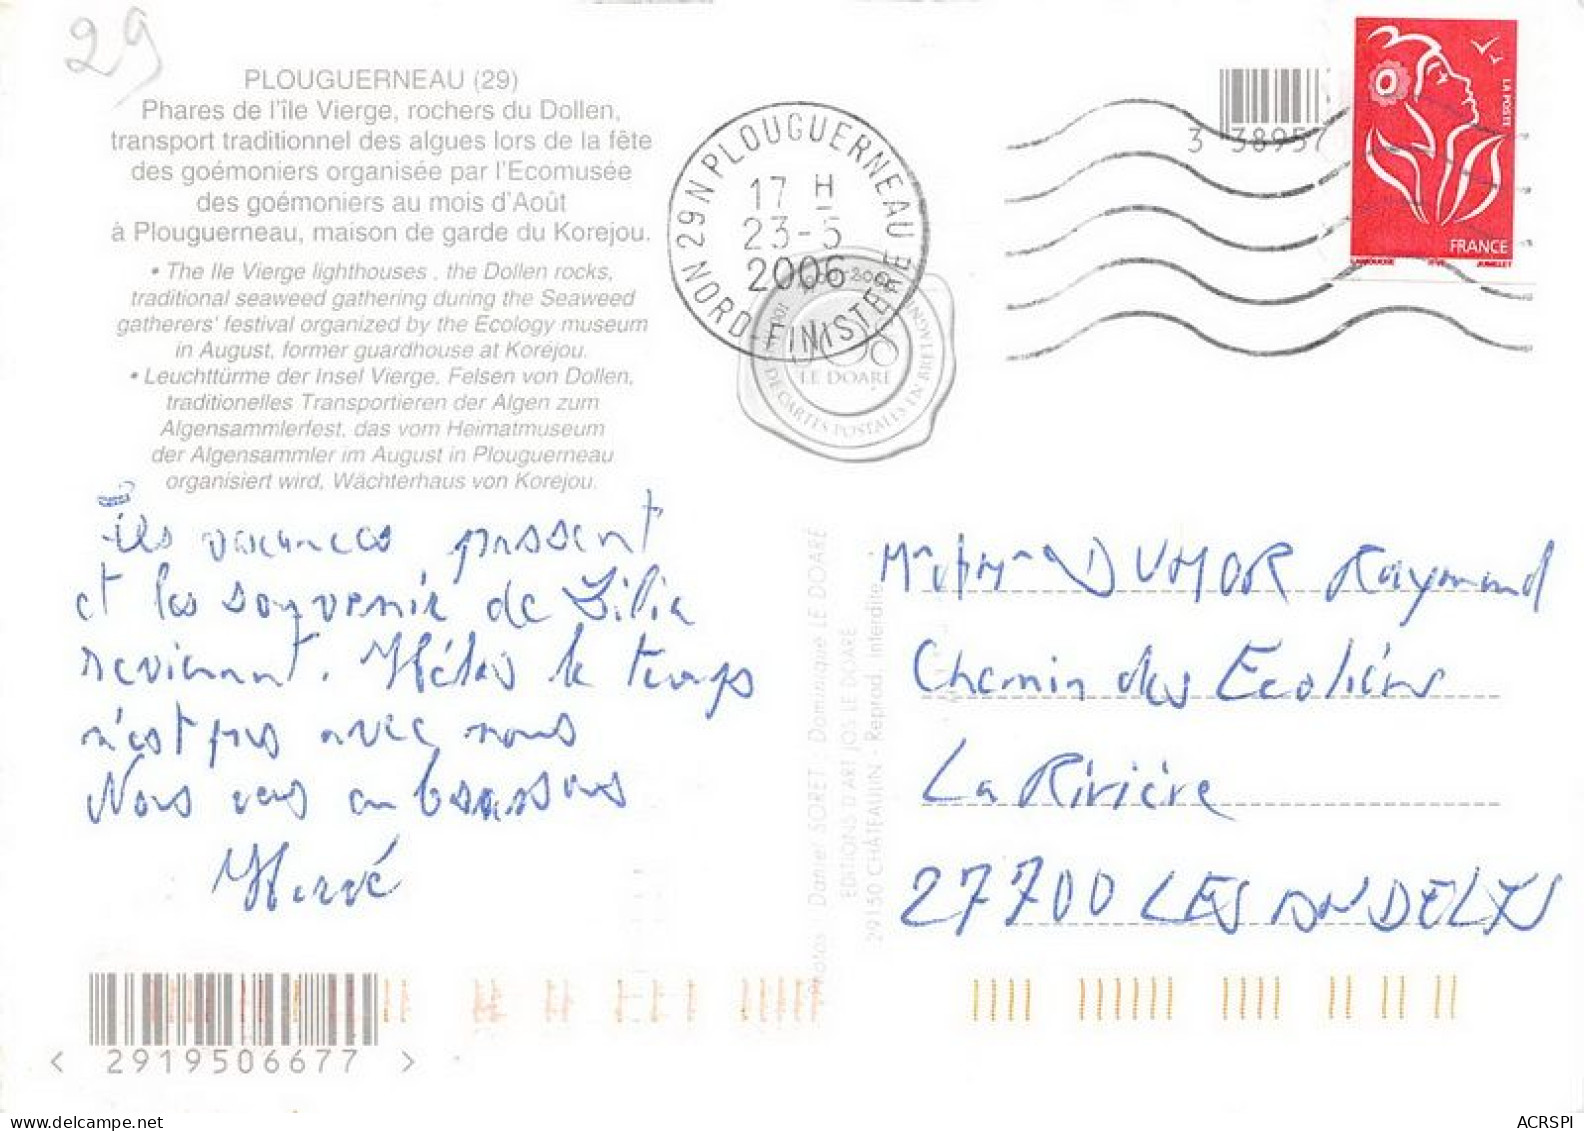 29
PLOUGUERNEAU (29)
Phares de l'île Vierge, rochers du Dollen,
transport traditionnel des algues lors de la fête
des goémoniers organisée par l'Ecomusée
des goémoniers au mois d'Août
à Plouguerneau, maison de garde du Korejou.
• The Ile Vierge lighthouses , the Dollen rocks,
traditional seaweed gathering during the Seaweed
gatherers' festival organized by the Ecology museum
in August, former guardhouse at Koréjou.
• Leuchttürme der Insel Vierge, Felsen von Dollen,
traditionelles Transportieren der Algen zum
Algensammlerfest, das vom Heimatmuseum
der Algensammler im August in Plouguerneau
organisiert wird, Wächterhaus von Korejou.
29 N PLOUGUERNEAU
17 H
23-5
2006
NORD FINISTERE
LE DOARÉ
DE CARTES POSTALES EN BRETAGNE
3 38957
LA POSTE
FRANCE
LAMOUCHE ITVF JUMELET
les vacances passent
et les souvenir de Lilia
reviennent. Hélas le temps
n'est pas avec nous
Nous vous embrassons
Hervé
Photos : Daniel SORET, Dominique LE DOARÉ
EDITIONS D'ART JOS LE DOARÉ
29150 CHÂTEAULIN - Reprod. interdite
Mr et Mme DUMOR Raymond
Chemin des Ecoliers
La Rivière
27700 LES ANDELYS
< 2919506677 >
ACRSPI